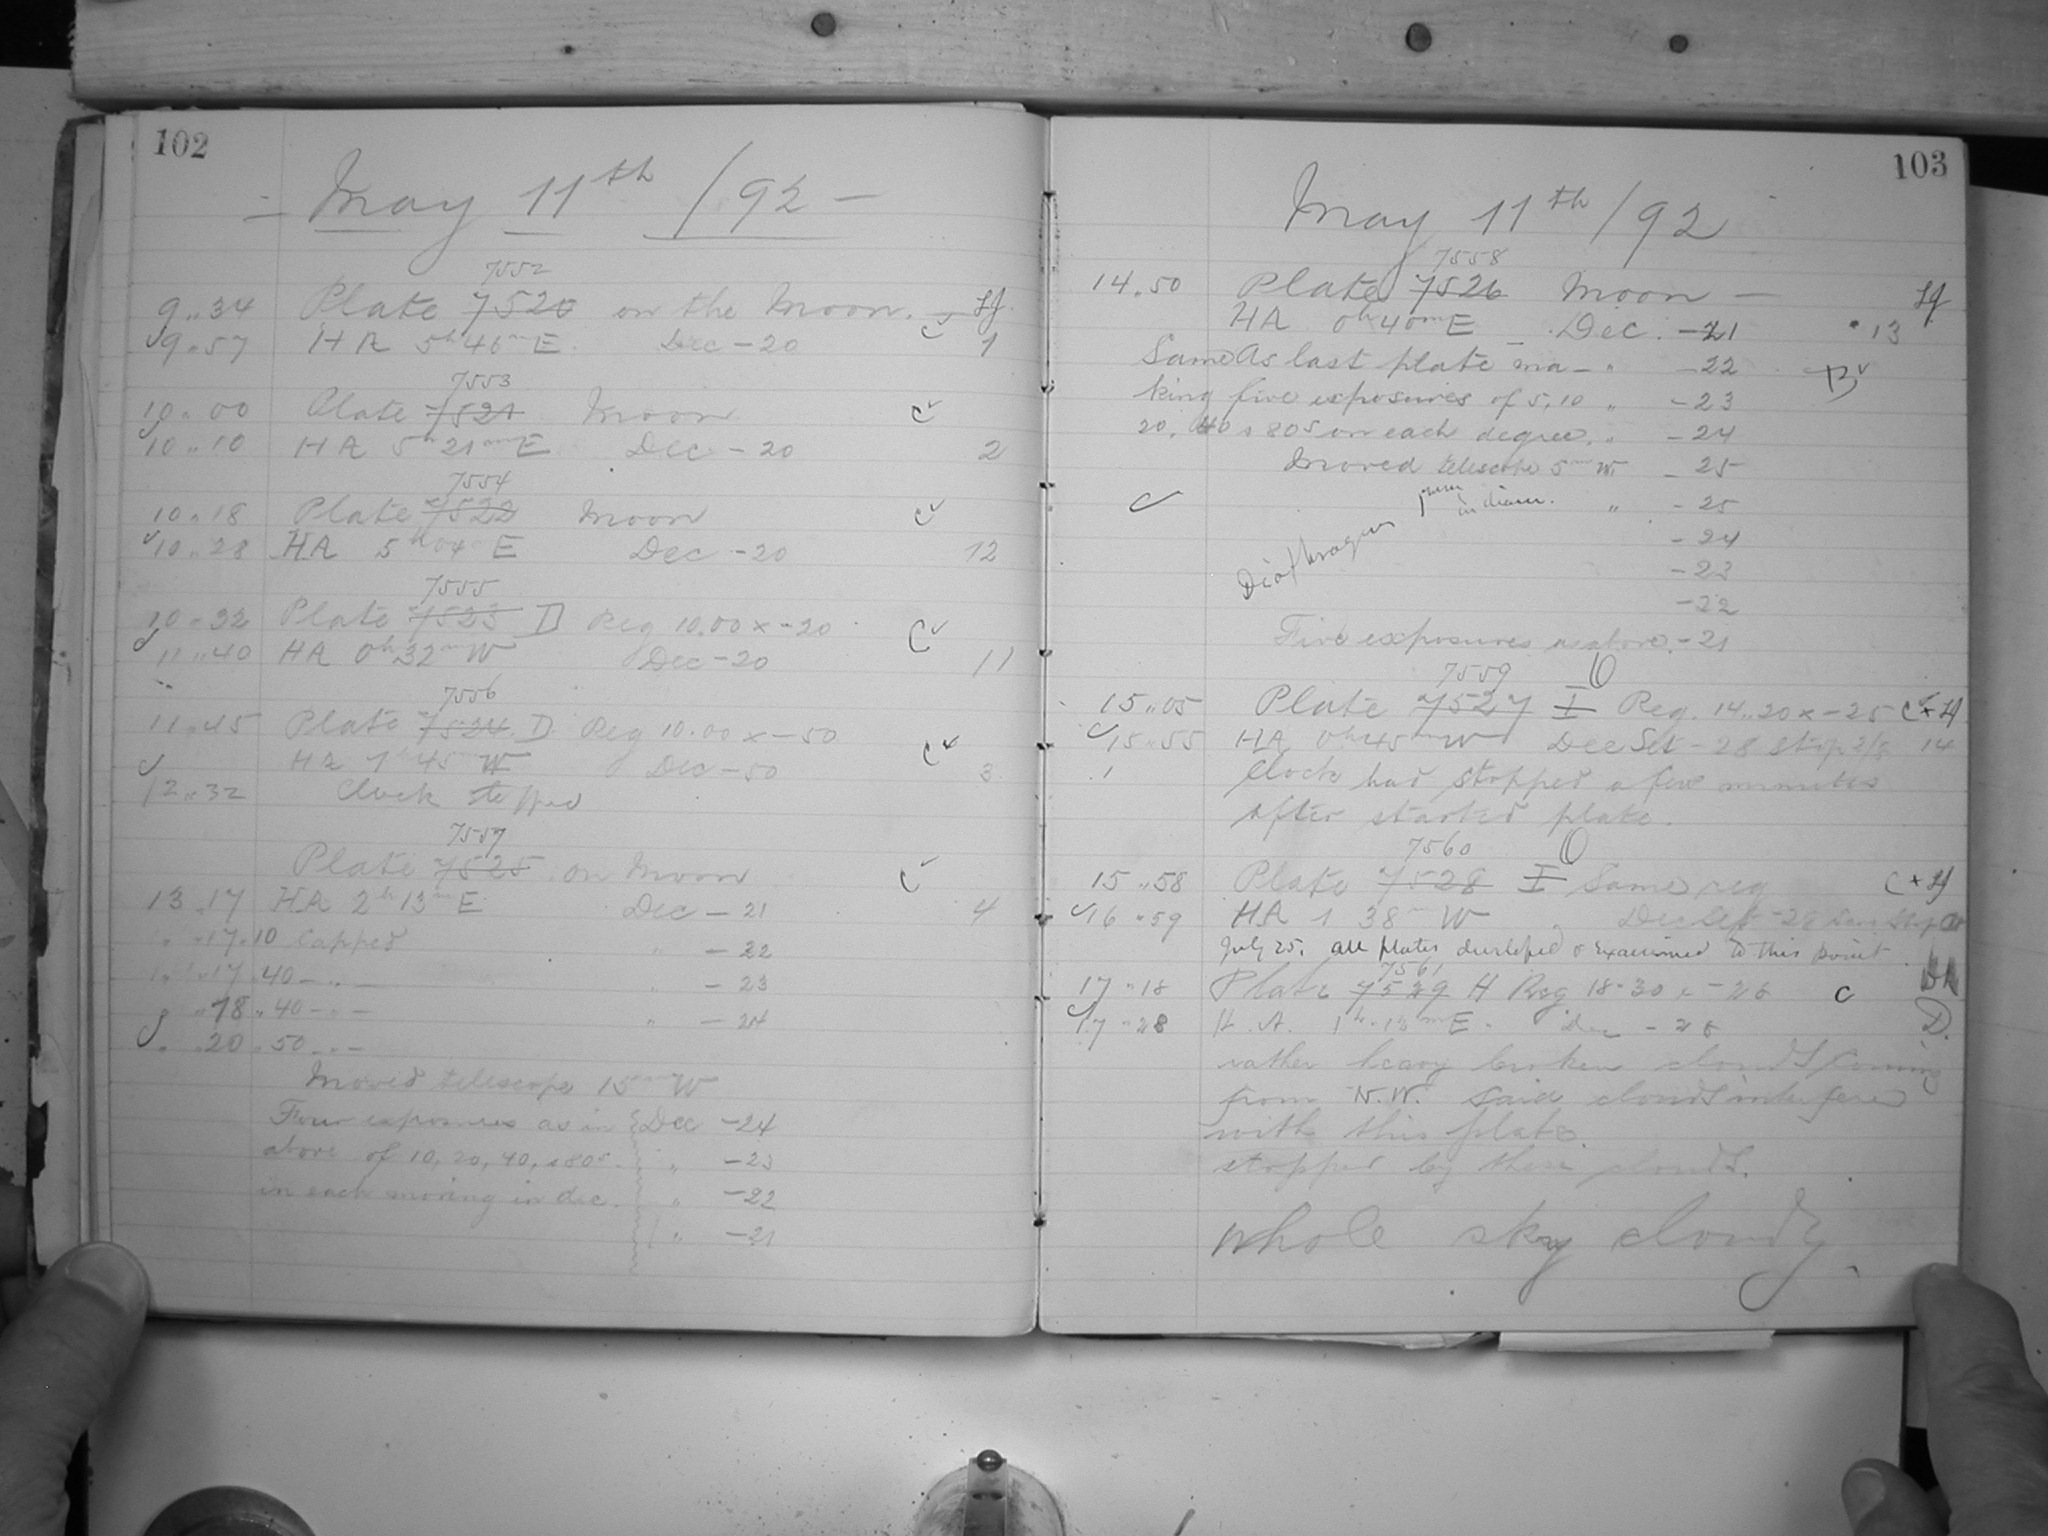 102
- May 11th /92 -
7552
9..34 Plate 7520 on the Moon.
9..57 HA 5h 46m E. Dec -20 1
7553
10..00 Plate 7521 Moon C
10..10 HA 5h 21m E Dec -20 2
7554
10..18 Plate 7522 Moon C
10..28 HA 5h 04m E Dec -20 12
7555
10..32 Plate 7523 D Reg 10.00 x -20 C
11..40 HA 0h 32m W Dec -20 11
7556
11..45 Plate 7524 D. Reg 10.00 x -50 C
HA 1h 45m W Dec -50 3
12..32 Clock stopped
7557
Plate 7525 on Moon C
13..17 HA 2h 13m E Dec -21 4
" ..17..10 Capped " -22
" ..17..40 - " - " -23
" ..18..40 - " - " -24
" ..20..50 - " -
Moved telescope 15m W
Four exposures as in Dec -24
above of 10, 20, 40, & 80s. " -23
in each moving in dec. " -22
" -21
103
May 11th /92
7558
14..50 Plate 7526 Moon -
HA 0h 40m E Dec. -21 13
Same as last plate ma- " -22
king five exposures of 5, 10 " -23
20, 40 & 80s on each degree. " -24
Moved telescope 5m W. -25
C Diaphragm in diam. " -25
-24
-23
-22
Five exposures as above. -21
7559 O
15..05 Plate 7527 I Reg. 14..20 x -25 C x
15..55 HA 0h 45m W Dec Set -28 Stop 2/8 14
Clock had stopped a few minutes
after started plate.
7560 O
15..58 Plate 7528 I Same reg C x
16..59 HA 1 38m W Dec Set -28 Same Stop
July 25. all plates developed & examined to this point
7561
17..18 Plate 7529 H Reg 18.30 x -28 C
17..28 H.A. 1h.12m E. Dec -28 D.
rather heavy broken clouds coming
from N.W. Said clouds interfered
with this plate.
stopped by these clouds.
whole sky cloudy.